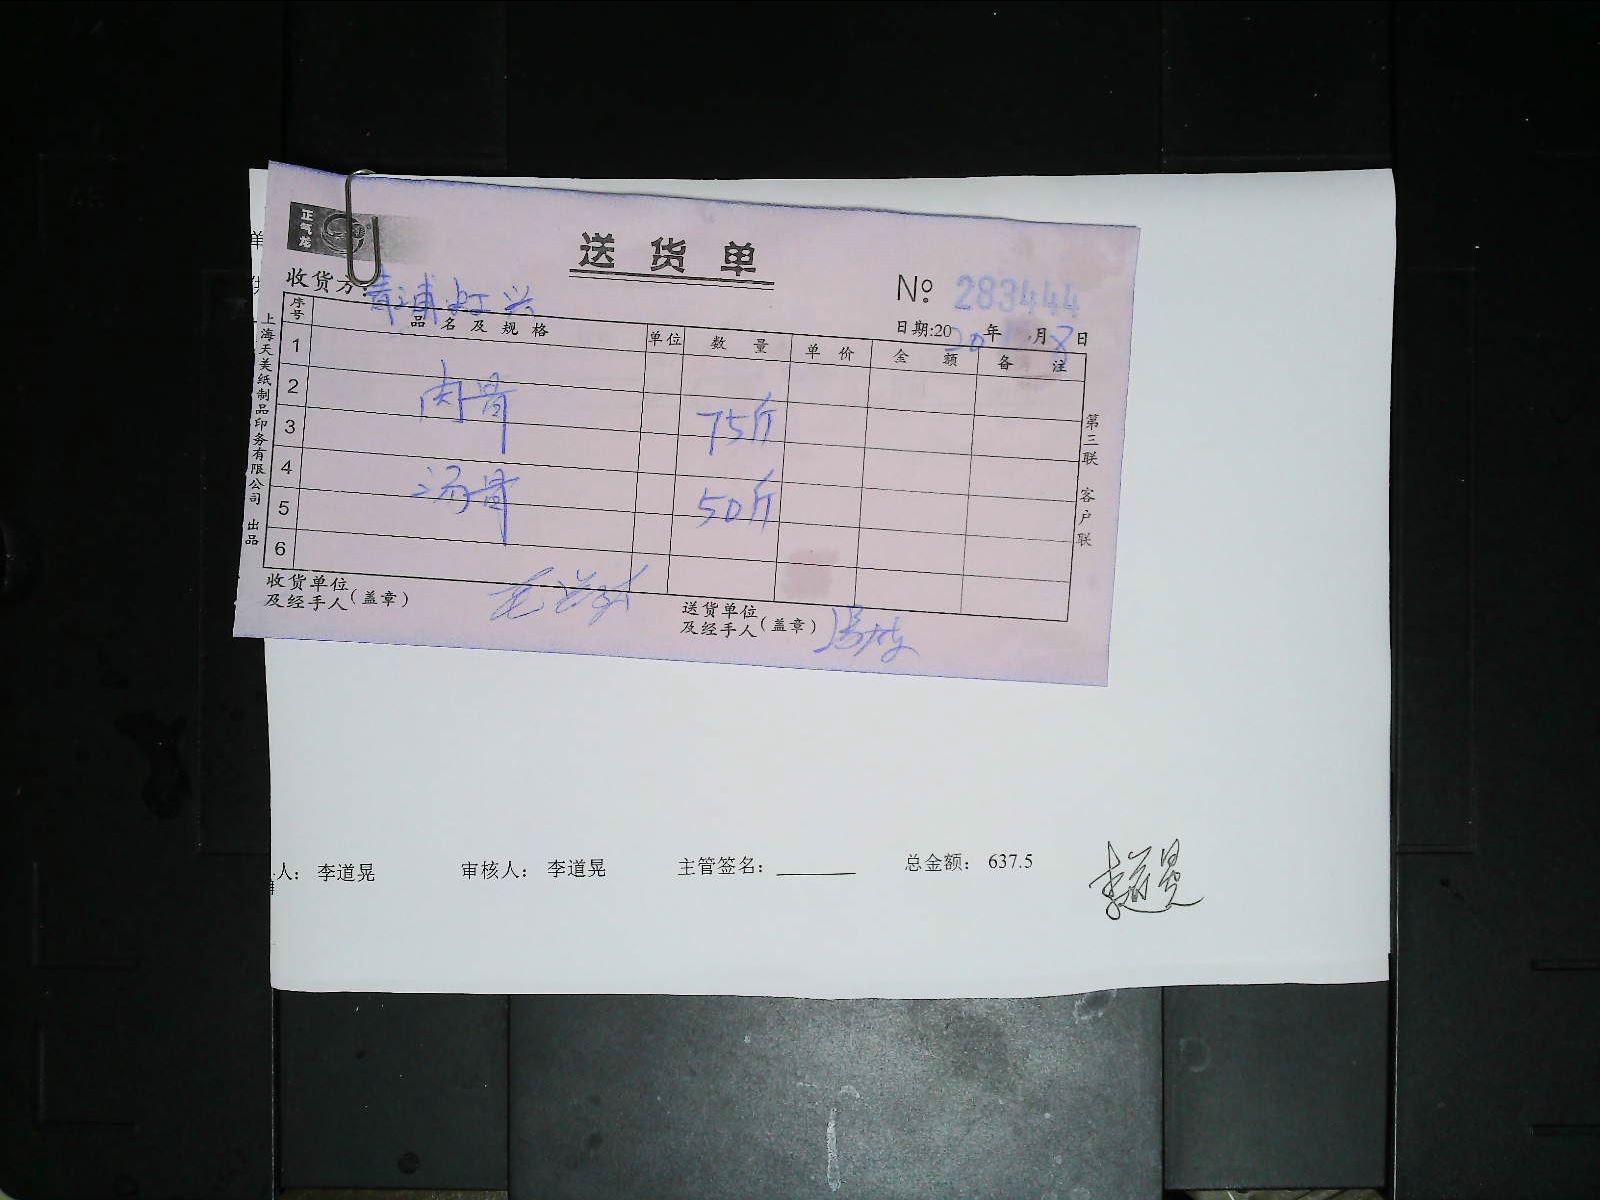 正气龙
送货单
№ 283444
收货方：青浦虹兴
日期:2020年 月8日
序号 品名及规格 单位 数量 单价 金额 备注
1
2 肉骨 75斤
3
4 汤骨 50斤
5
6
上海天美纸制品印务有限公司 出品
第三联 客户联
收货单位
及经手人(盖章)
送货单位
及经手人(盖章)
人： 李道晃 审核人： 李道晃 主管签名： 总金额： 637.5
李道晃